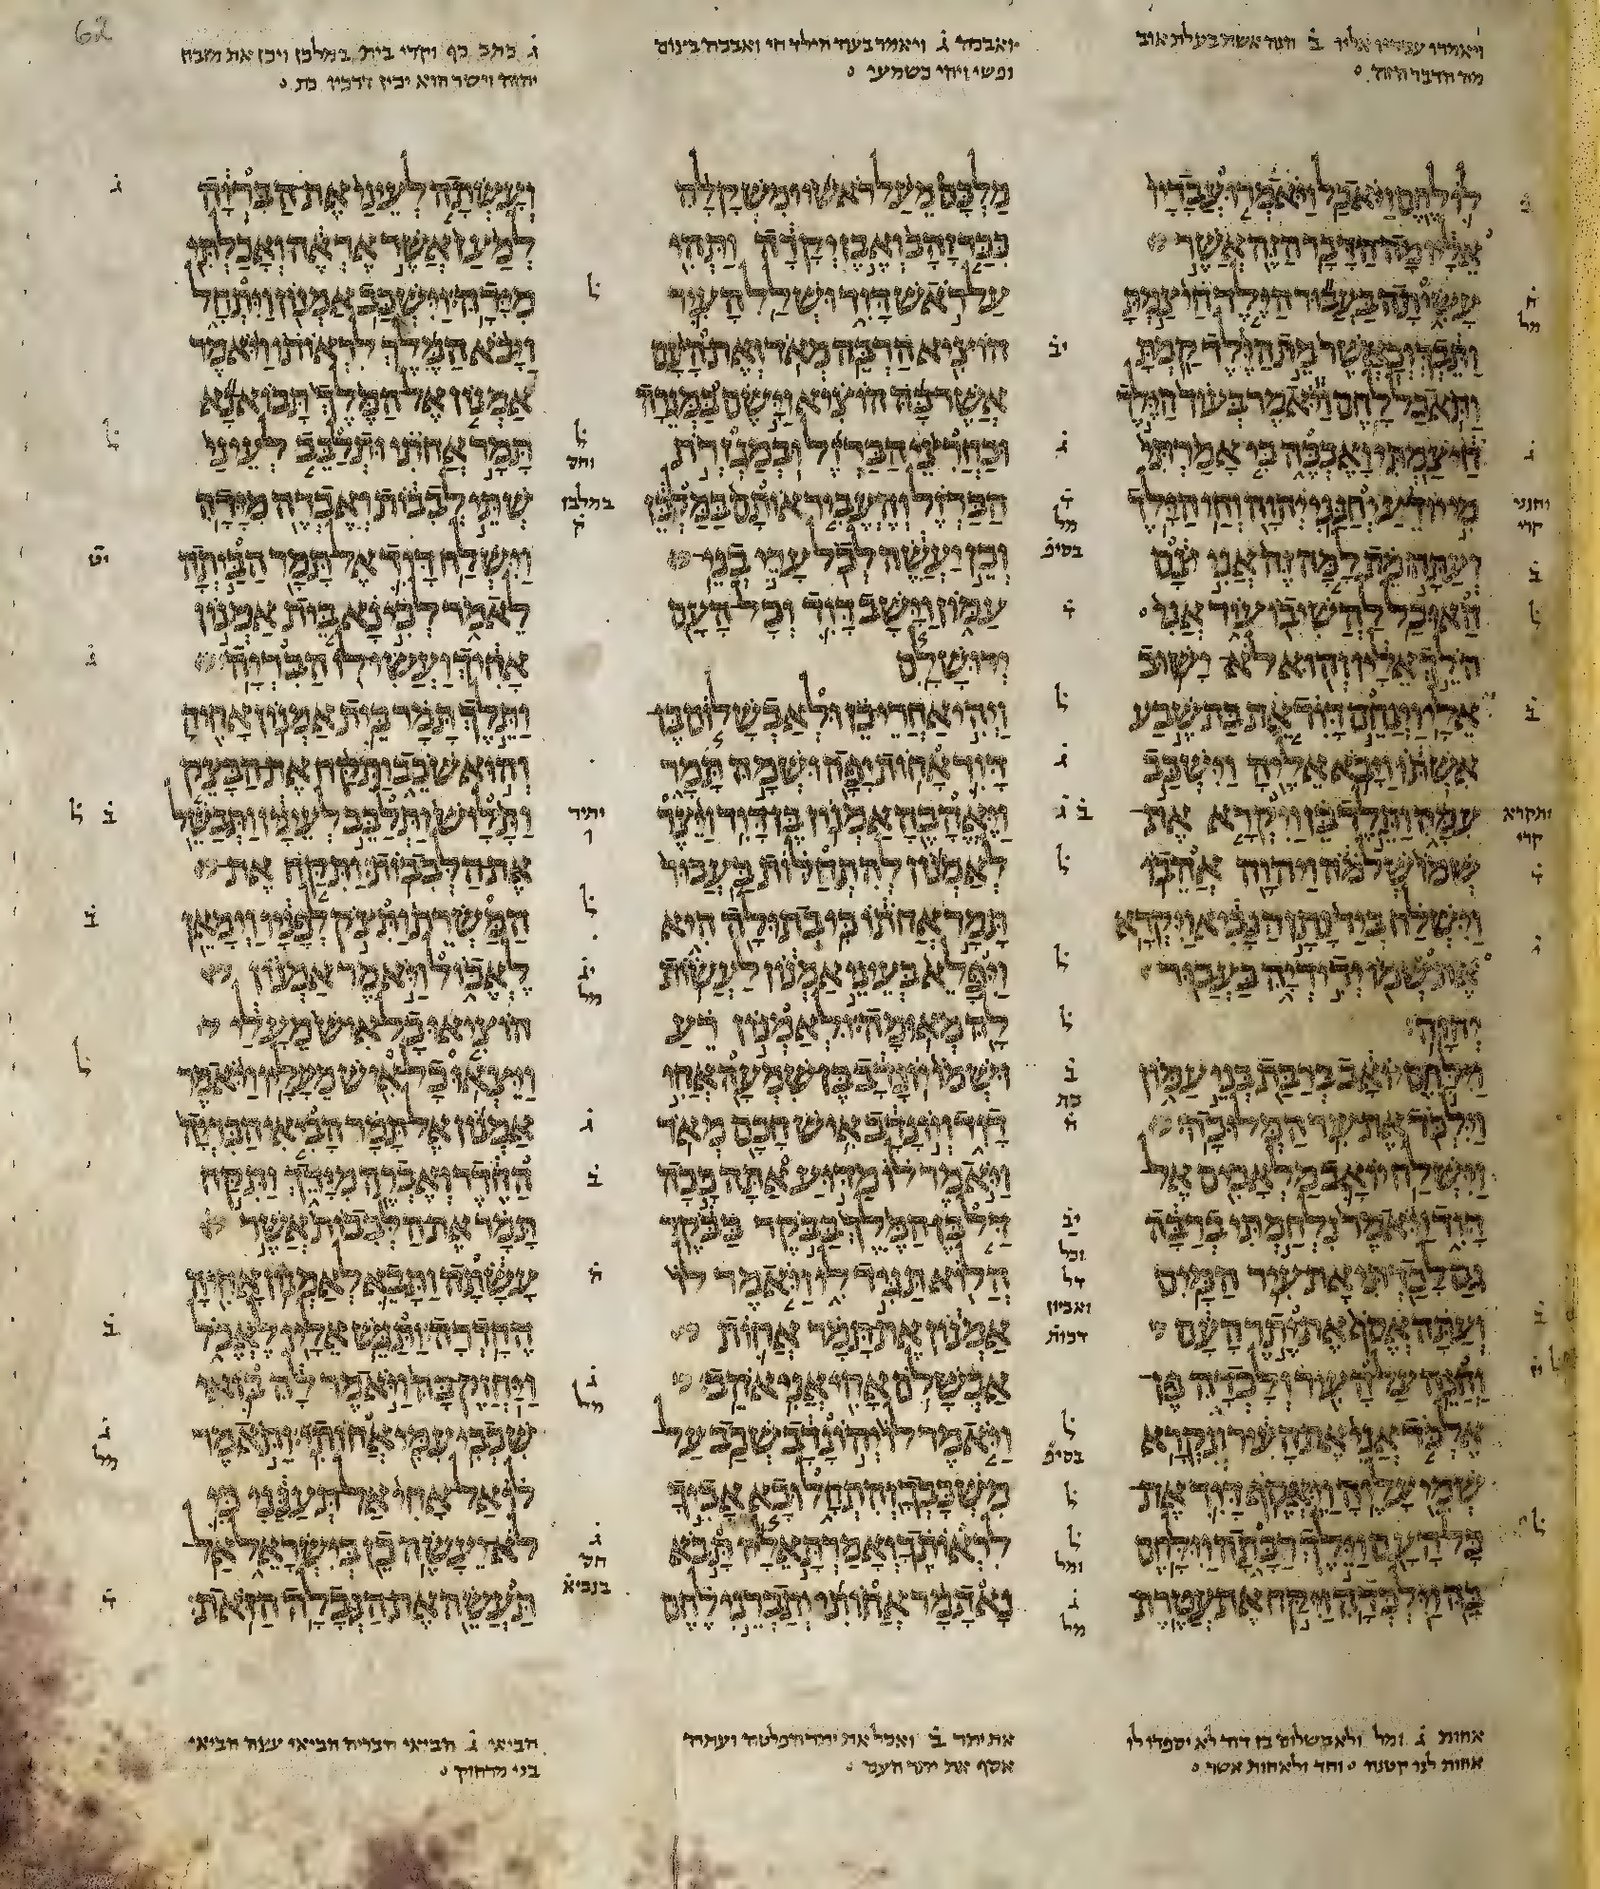 ויאמרו עבדיו אליו ב̇ הנה אשת בעלת אוב
מה הדבר הזה
ואבכה ג̇ ויאמר בעוד הילד חי ואבכה בצום
נפשי ויהי כשמעי
ג̇ כתב כף וקרי בית במלכן ויכן את מזבח
יהוה וישר הוא יכין דרכיו כת
לו לחם ויאכל ויאמרו עבדיו
אליו מה הדבר הזה אשר
עשיתה בעבור הילד חי צמת
ותבך וכאשר מת הילד קמת
ותאכל לחם ויאמר בעוד הילד
חי צמתי ואבכה כי אמרתי
מי יודע יחנני יהוה וחי הילד
ועתה מת למה זה אני צם
האוכל להשיבו עוד אני
הלך אליו והוא לא ישוב
אלי וינחם דוד את בת שבע
אשתו ויבא אליה וישכב
עמה ותלד בן ויקרא את
שמו שלמה ויהוה אהבו
וישלח ביד נתן הנביא ויקרא
את שמו ידידיה בעבור
יהוה
וילחם יואב ברבת בני עמון
וילכד את עיר המלוכה
וישלח יואב מלאכים אל
דוד ויאמר נלחמתי ברבה
גם לכדתי את עיר המים
ועתה אסף את יתר העם
וחנה על העיר ולכדה פן
אלכד אני את העיר ונקרא
שמי עליה ויאסף דוד את
כל העם וילך רבתה וילחם
בה וילכדה ויקח את עטרת
מלכם מעל ראשו ומשקלה
ככר זהב ואבן יקרה ותהי
על ראש דוד ושלל העיר
הוציא הרבה מאד ואת העם
אשר בה הוציא וישם במגרה
ובחרצי הברזל ובמגזרת
הברזל והעביר אותם במלכן
וכן יעשה לכל ערי בני
עמון וישב דוד וכל העם
ירושלם
ויהי אחרי כן ולאבשלום בן
דוד אחות יפה ושמה תמר
ויאהבה אמנון בן דוד ויצר
לאמנון להתחלות בעבור
תמר אחתו כי בתולה היא
ויפלא בעיני אמנון לעשות
לה מאומה ולאמנון רע
ושמו יונדב בן שמעה אחי
דוד ויונדב איש חכם מאד
ויאמר לו מדוע אתה ככה
דל בן המלך בבקר בבקר
הלוא תגיד לי ויאמר לו
אמנון את תמר אחות
אבשלם אחי אני אהב
ויאמר לו יהונדב שכב על
משכבך והתחל ובא אביך
לראותך ואמרת אליו תבא
נא תמר אחותי ותברני לחם
ועשתה לעיני את הבריה
למען אשר אראה ואכלתי
מידה וישכב אמנון ויתחל
ויבא המלך לראותו ויאמר
אמנון אל המלך תבוא נא
תמר אחתי ותלבב לעיני
שתי לבבות ואברה מידה
וישלח דוד אל תמר הביתה
לאמר לכי נא בית אמנון
אחיך ועשי לו הבריה
ותלך תמר בית אמנון אחיה
והוא שכב ותקח את הבצק
ותלוש ותלבב לעיניו ותבשל
את הלבבות ותקח את
המשרת ותצק לפניו וימאן
לאכול ויאמר אמנון
הוציאו כל איש מעלי
ויצאו כל איש מעליו ויאמר
אמנון אל תמר הביאי הבריה
החדר ואברה מידך ותקח
תמר את הלבבות אשר
עשתה ותבא לאמנון אחיה
החדרה ותגש אליו לאכל
ויחזק בה ויאמר לה בואי
שכבי עמי אחותי ותאמר
לו אל אחי אל תענני כי
לא יעשה כן בישראל אל
תעשה את הנבלה הזאת
אחות ג̇ ומל ולאבשלום בן דוד לא יספדו לו
אחות לנו קטנה וחד ולאחות אשר
את יתר ב̇ ואכל את יתר הפלטה ועתה
אסף את יתר העם
הביאי ג̇ הביאי הבריה הביאי עצה הביאי
בני מרחוק